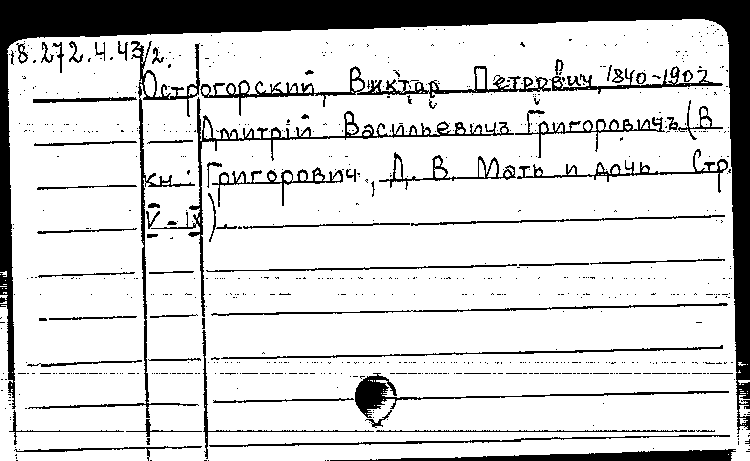 18.272.4.43/2.
Острогорский, Виктар Петрович, 1840-1902
Дмитрій Васильевичъ Григоровичъ (В
кн.: Григорович, Д. В. Мать и дочь. Стр.
V - IX).